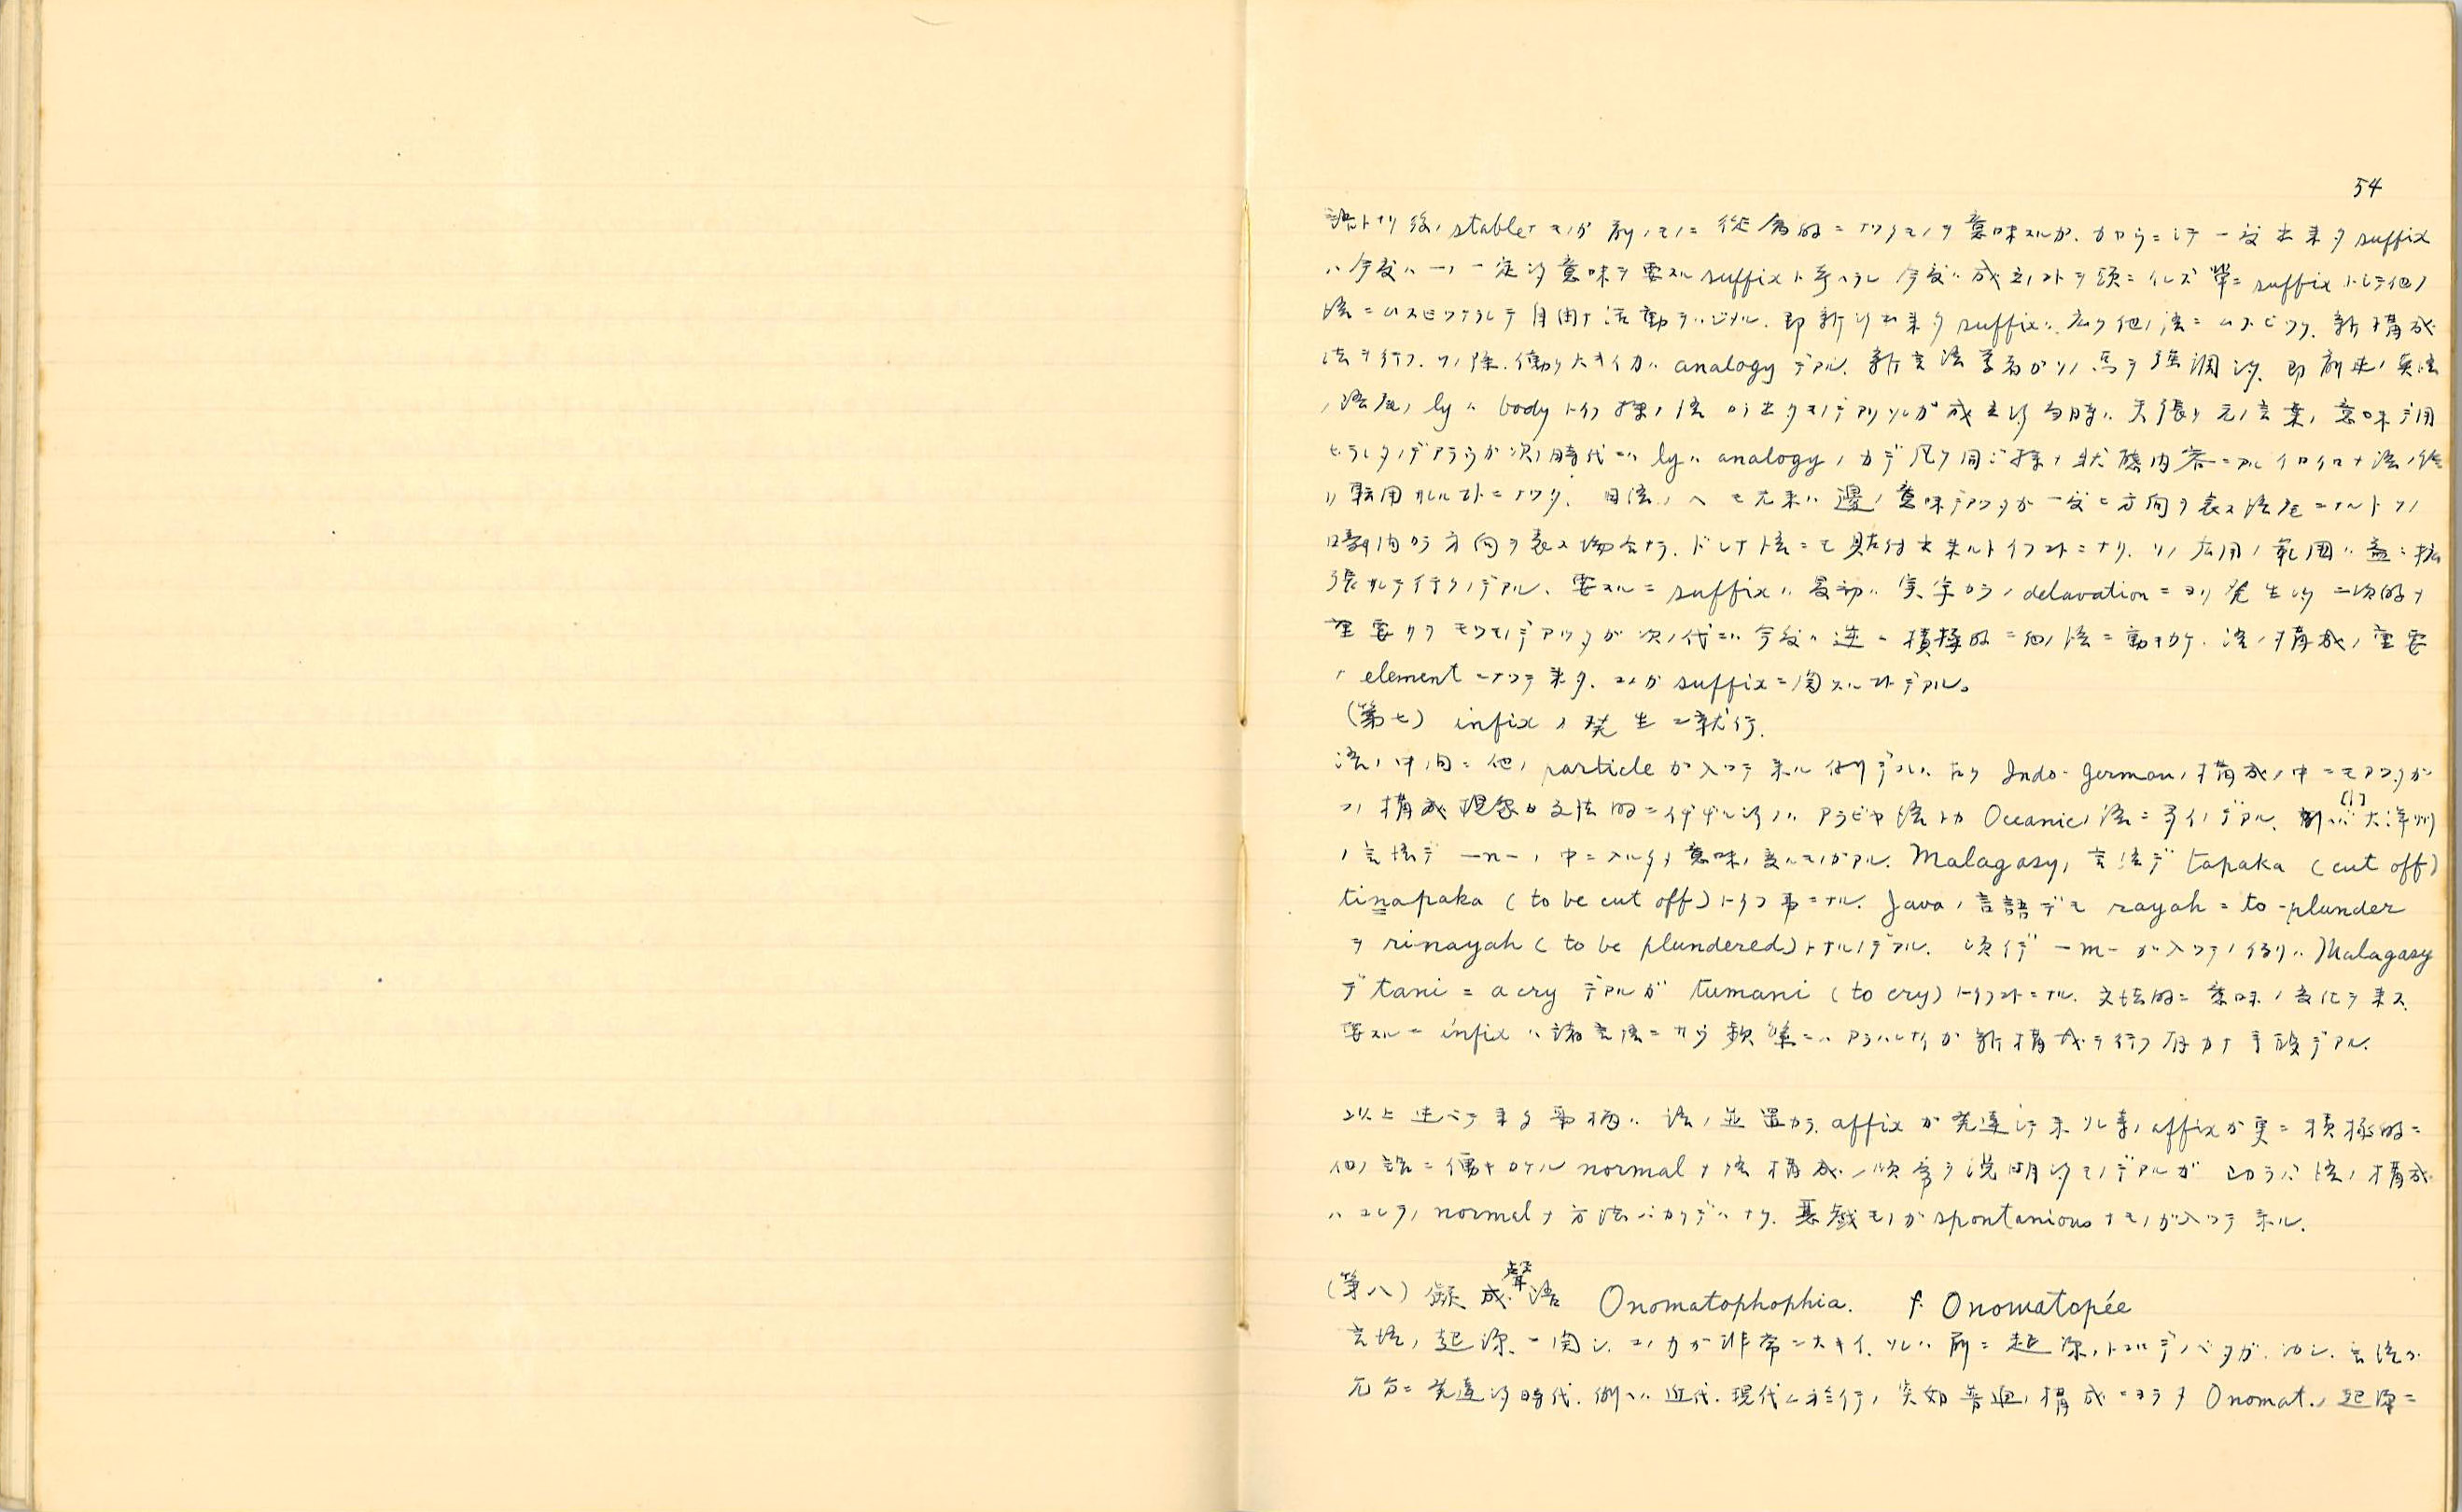 54
語トナリ後ノ stableナモノガ前ノモノニ従属的ニナツタモノヲ意味スルガ、カヤウニシテ一度出来タ suffix
ハ今度ハ一ノ一定シタ意味ヲ要スル suffix ト考ヘラレ今度ハ成立ノコトヲ頭ニイレズ単ニ suffix トシテ他ノ
語ニムスビツケラレテ自由ナ活動ヲハジメル. 即新シク出来タ suffix ハ広ク他ノ語ニムスビツク. 新構成
法ヲ行フ. ソノ際働ク大キイ力ハ analogy デアル. 新言語学者ガソノ点ヲ強調シタ. 即前述ノ英語
ノ語尾ノ ly ハ body トイフ様ノ語カラ出タモノデアリソレガ成立シタ当時ハ矢張リ元ノ言葉ノ意味デ用
ヒラレタノデアラウガ次ノ時代ニハ ly ハ analogy ノ力デ凡ク同ジ様ナ状態内容ニアルイロイロナ語ノ後
ニ転用サレルコトニナツタ. 日語ノヘモ元来ハ邊ノ意味デアツタガ一度ビ方向ヲ表ス語尾ニナルトソノ
時期内カラ方向ヲ表ス場合ナラ, ドンナ語ニモ貼付出来ルトイフコトニナリ. ソノ応用ノ範囲ハ益々拡
張サレテ行クノデアル. 要スルニ suffix ハ最初ハ実字カラノ delavation ニヨリ発生シタ二次的ナ
重要ナラヌモノデアツタガ次ノ代ニハ今度ハ逆ニ積極的ニ他ノ語ニ動キカケ. 語ノ構成ノ重要
ナ element ニナツテ来タ. コレガ suffix ニ関スルコトデアル。
(第七) infix ノ発生ニ就行.
語ノ中間ニ他ノ particle ガ入ツテ来ル例デアル. Indo-German ノ構成ノ中ニモアツタガ
コノ構成現象ガ文法的ニイチヂルシイノハアラビヤ語トカ Oceanic ノ語ニ多イノデアル. 例ヘバ大洋州
ノ言語デ -n- ノ中ニ入ルタメ意味ノ変ルモノガアル. Malagasy ノ言語デ tapaka (cut off)
tinapaka (to be cut off) トイフ事ニナル. Java ノ言語デモ rayah = to-plunder
ヲ rinayah (to be plundered) トナルノデアル. -m- ガ入ツテノ例ハ Malagasy
デ tani = a cry デアルガ tumani (to cry) トイフコトニナル. 文法的ニ意味ノ変化ヲ来ス
要スルニ infix ハ諸言語ニカク頻繁ニハアラハレナイガ新構成ヲ行フ有力ナ手段デアル.
以上述ベテ来タ事柄ハ語ノ並置カラ affix ガ発達シテ来ソレ等ノ affix ガ更ニ積極的ニ
他ノ語ニ働キカケル normal ナ語構成ノ順序ヲ説明シタモノデアルガ 語ノ構成
ハコレラノ normal ナ方法バカリデハナク. 悪戯モノガ spontanious ナモノガ入ツテ来ル.
(第八) 擬成聲語 Onomatophophia. f. Onomatopée
言語ノ起源ニ関シ. コノ力ガ非常ニ大キイ. ソレハ前ニ起源ノトコロデノベタガ. シカシ. 言語ガ
充分ニ発達シタ時代. 例ヘバ近代. 現代ニ於行ノ突如普通ノ構成ニヨラヌ Onomat. ノ起源ニ